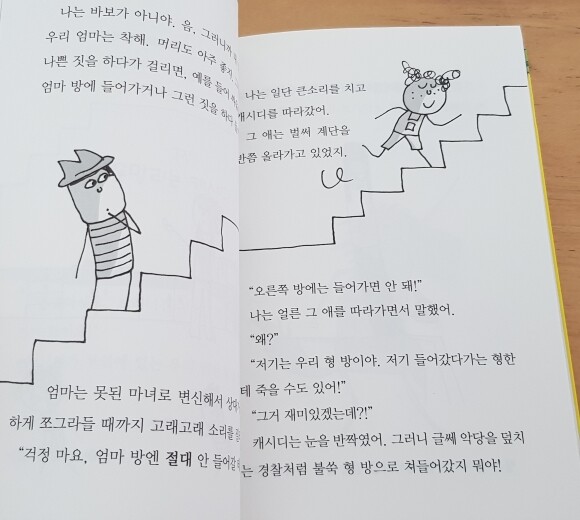 나는 바보가 아니야. 음, 그러니까
우리 엄마는 착해. 머리도 아주 좋지.
나쁜 짓을 하다가 걸리면, 예를 들어
엄마 방에 들어가거나 그런 짓을 하다
엄마는 못된 마녀로 변신해서
하게 쪼그라들 때까지 고래고래 소리를
“걱정 마요, 엄마 방엔 절대 안 들어갈
나는 일단 큰소리를 치고
캐시디를 따라갔어.
그 애는 벌써 계단을
반쯤 올라가고 있었지.
“오른쪽 방에는 들어가면 안 돼!”
나는 얼른 그 애를 따라가면서 말했어.
“왜?”
“저기는 우리 형 방이야. 저기 들어갔다가는 형한
테 죽을 수도 있어!”
“그거 재미있겠는데?!”
캐시디는 눈을 반짝였어. 그러니 글쎄 악당을 덮치
는 경찰처럼 불쑥 형 방으로 쳐들어갔지 뭐야!